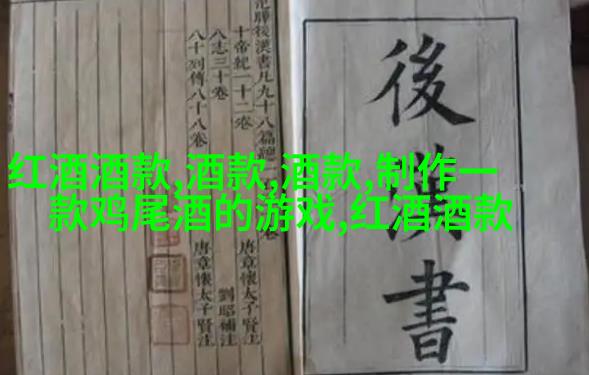 红酒酒款,酒款,酒款,制作一
款鸡尾酒的游戏,红酒酒款
後漢書
後漢書凡九十八篇總
十帝紀一十二卷 唐章懷太子賢注
八志三十卷 劉昭補注
八十列傳八十八卷 唐章懷太子賢注